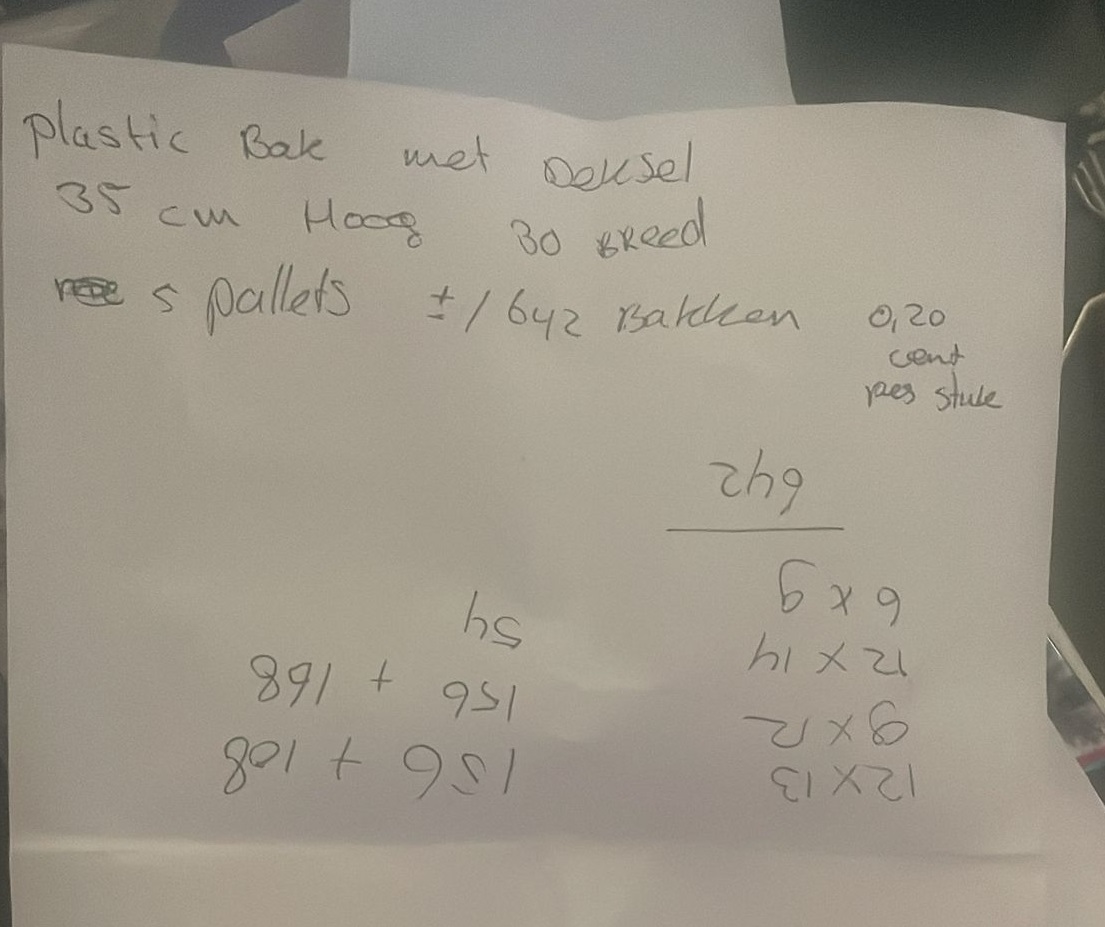 plastic Bak met Deksel
35 cm Hoog 30 BReed
5 pallets ± / 642 Bakken 0,20
cent
per stuk
12 x 13
9 x 12
12 x 14
6 x 9
642
156 + 108
156 + 168
54